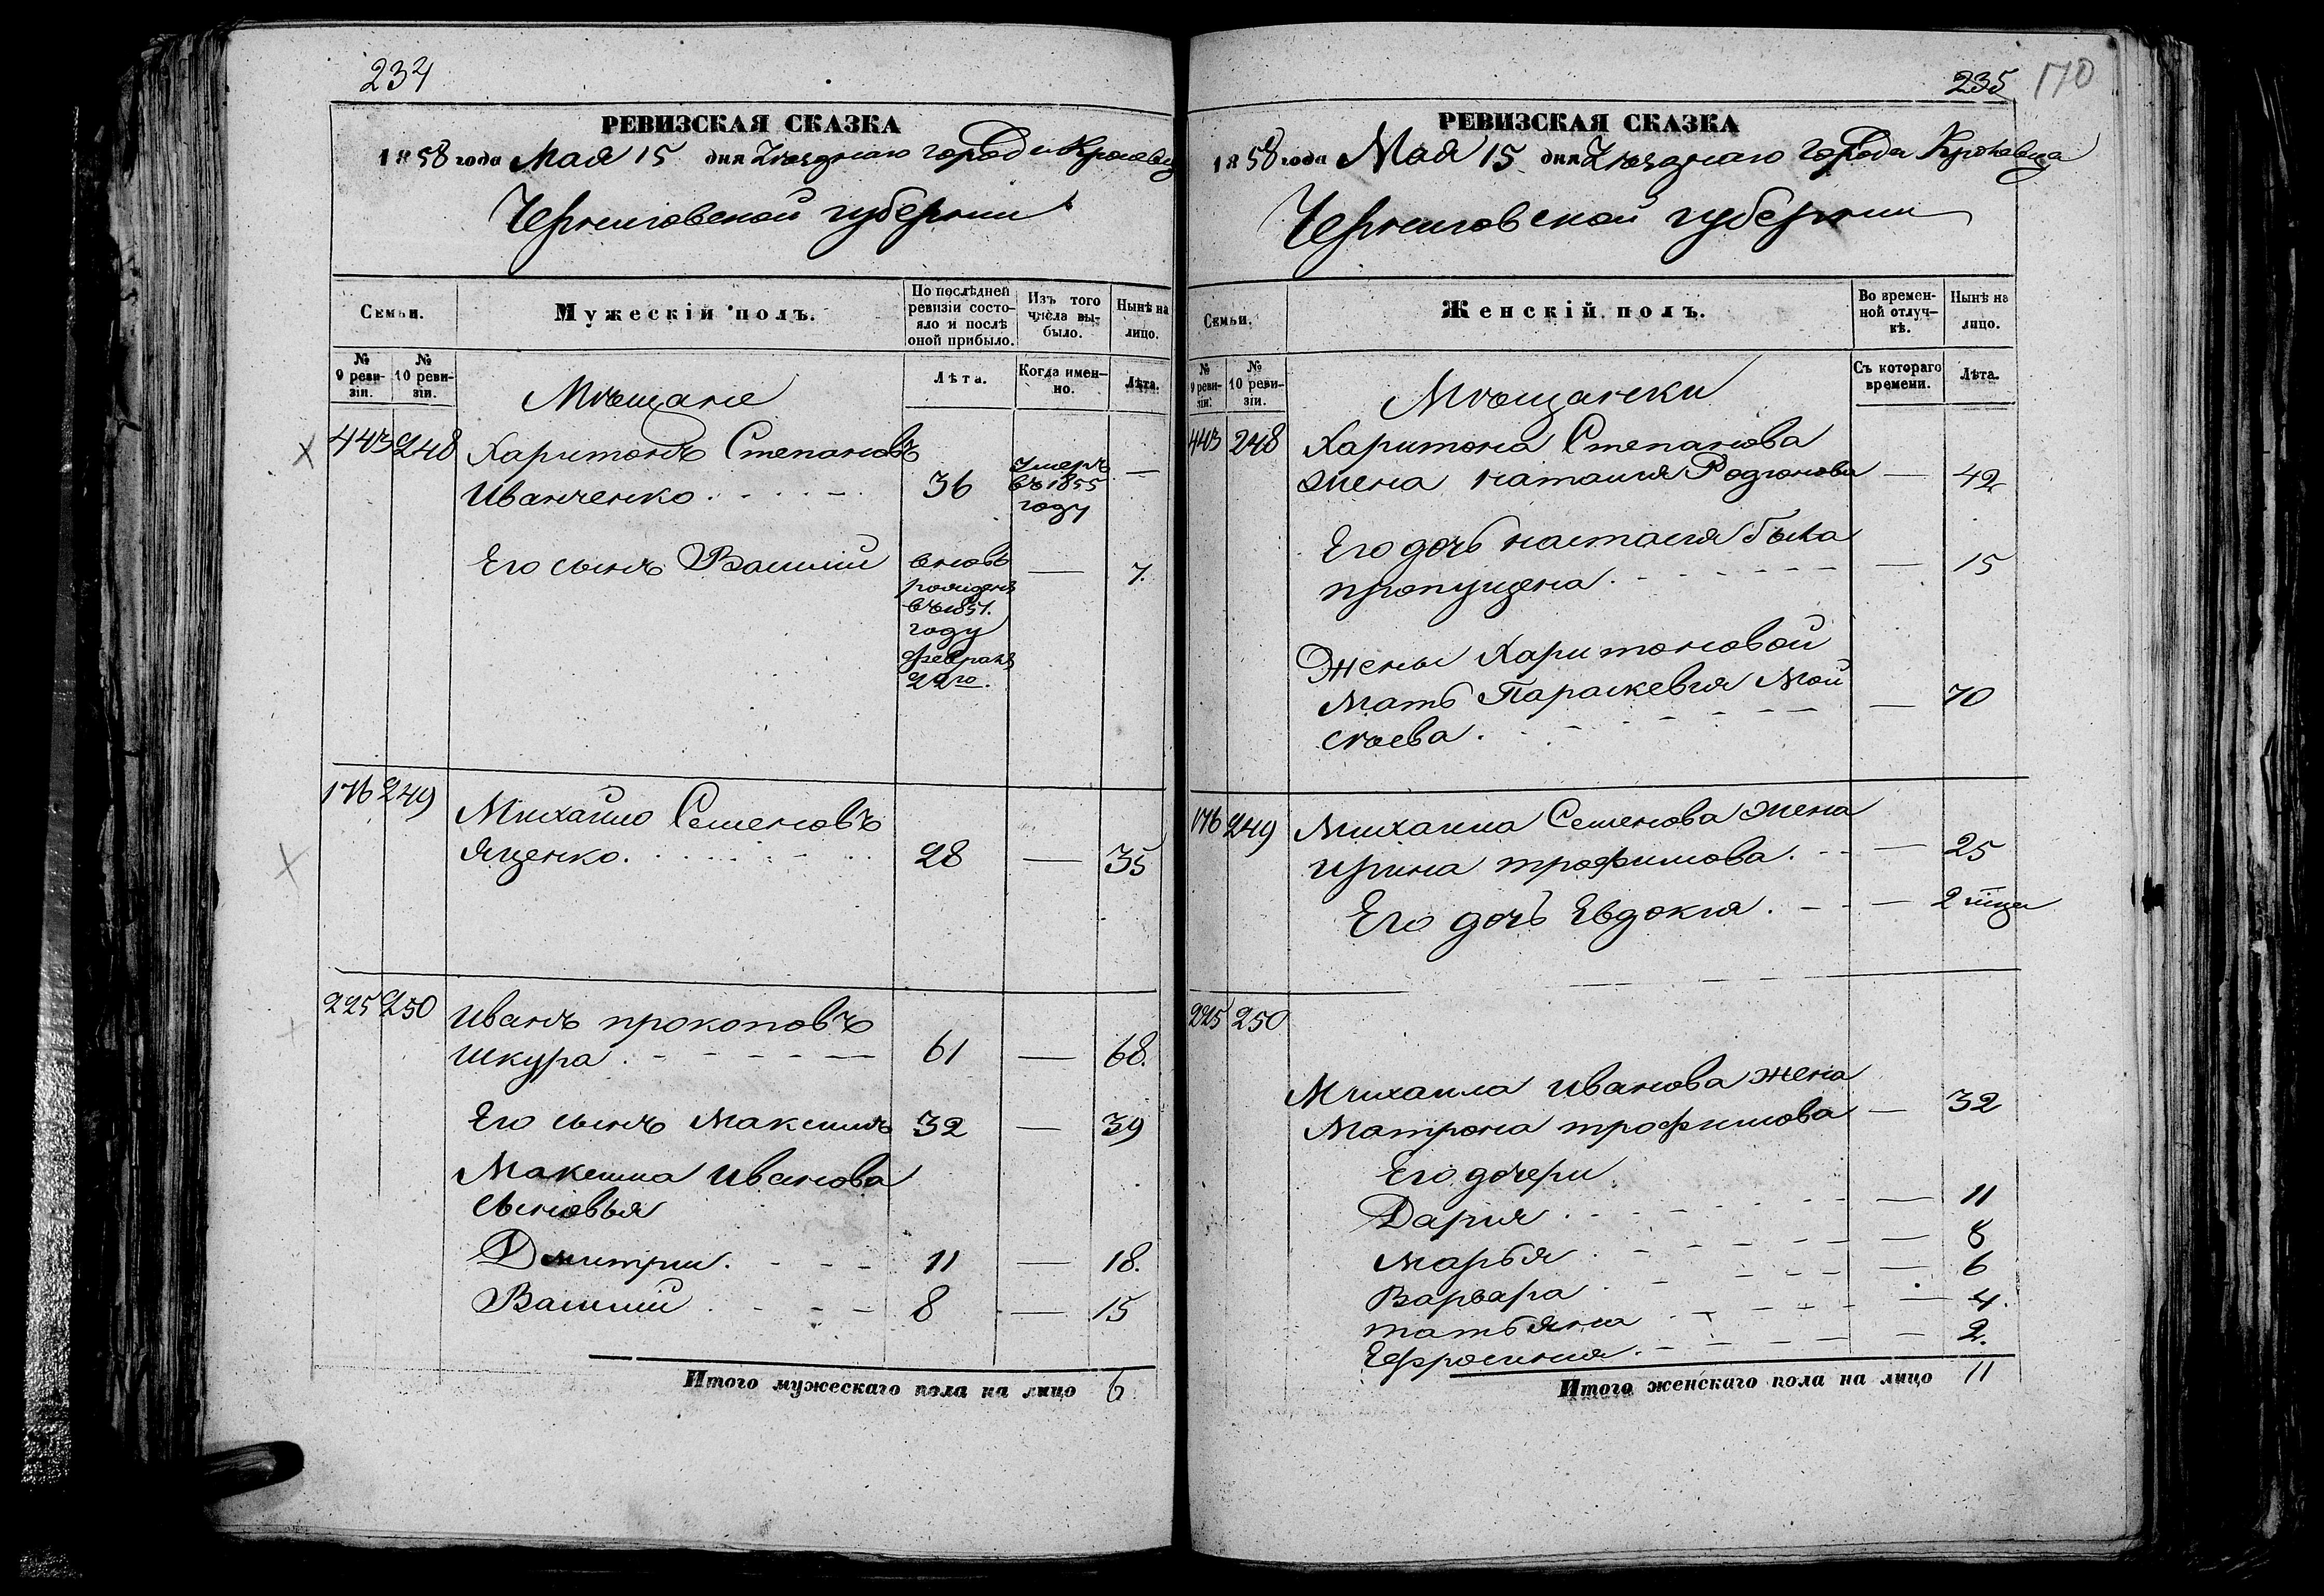 234
РЕВИЗСКАЯ СКАЗКА
1858 года Мая 15 дня Уѣзднаго города Кролевца
Черниговской губернии
Семьи.
Мужескій полъ.
По послѣдней ревизіи состояло и послѣ оной прибыло.
Изъ того числа выбыло.
Нынѣ на лицо.
№ 9 ревизіи.
№ 10 ревизіи.
Мѣщане
Лѣта.
Когда именно.
Лѣта.
443 248 Харитонъ Степановъ
Иванченко 36 Умеръ въ 1855 году —
Его сынъ Василий вновь — 7.
рожденъ
въ 1851.
году
февраля
22го.
176 249 Михайло Семеновъ
Яценко 28 — 35
225 250 Иванъ прокоповъ
Шкура 61 — 68.
Его сынъ Максимъ 32 — 39
Максима Иванова
сыновья
Дмитрий 11 — 18.
Василий 8 — 15
Итого мужескаго пола на лицо 6
235 170
РЕВИЗСКАЯ СКАЗКА
1858 года Мая 15 дня Уѣзднаго города Кролевца
Черниговской губернии
Семьи.
Женскій полъ.
Во временной отлучкѣ.
Нынѣ на лицо.
№ 9 ревизіи.
№ 10 ревизіи.
Мѣщански
Съ котораго времени.
Лѣта.
443 248 Харитона Степанова
жена наталия Родионова — 42
Его дочь настасия была
пропущена — 15
Жены Харитоновой
Мать Параскевия Мой
сѣева — 70
176 249 Михаила Семенова жена
ирина трофимова — 25
Его дочь Евдокия — 2
225 250
Михаила Иванова жена
Матрона трофимова — 32
Его дочери
Дария — 11
Марья — 8
Варвара — 6
татьяна — 4.
Ефросиния — 2.
Итого женскаго пола на лицо 11